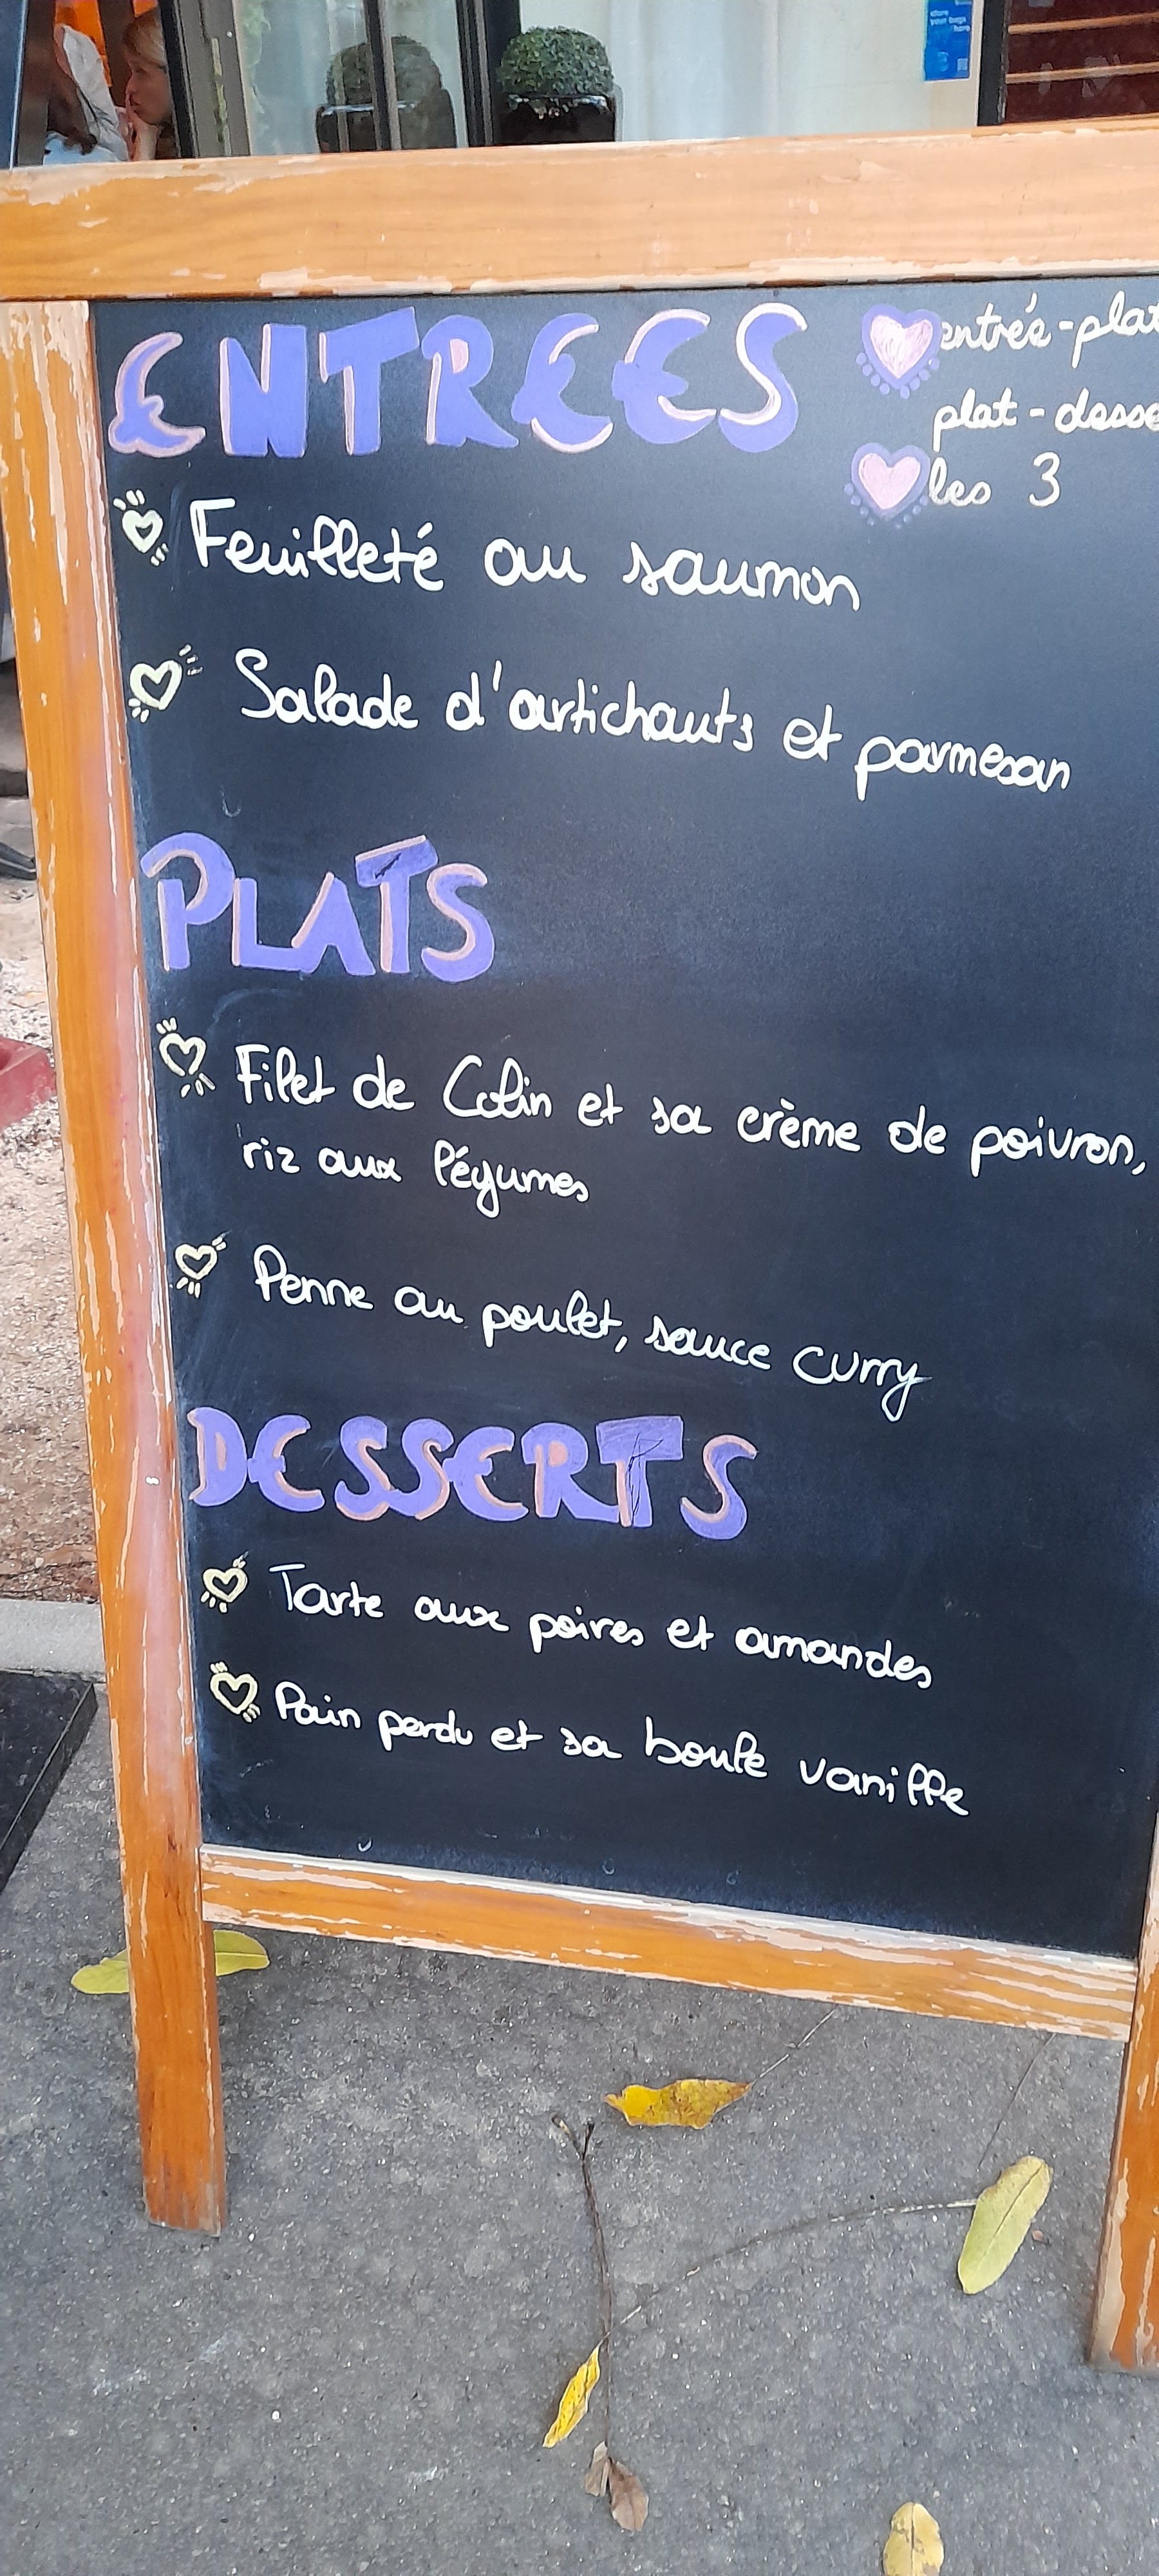 store
your bags
here
ENTREES
entrée-plat
plat-desse
les 3
Feuilleté au saumon
Salade d'artichauts et parmesan
PLATS
Filet de Colin et sa crème de poivron,
riz aux légumes
Penne au poulet, sauce curry
DESSERTS
Tarte aux poires et amandes
Pain perdu et sa boule vanille